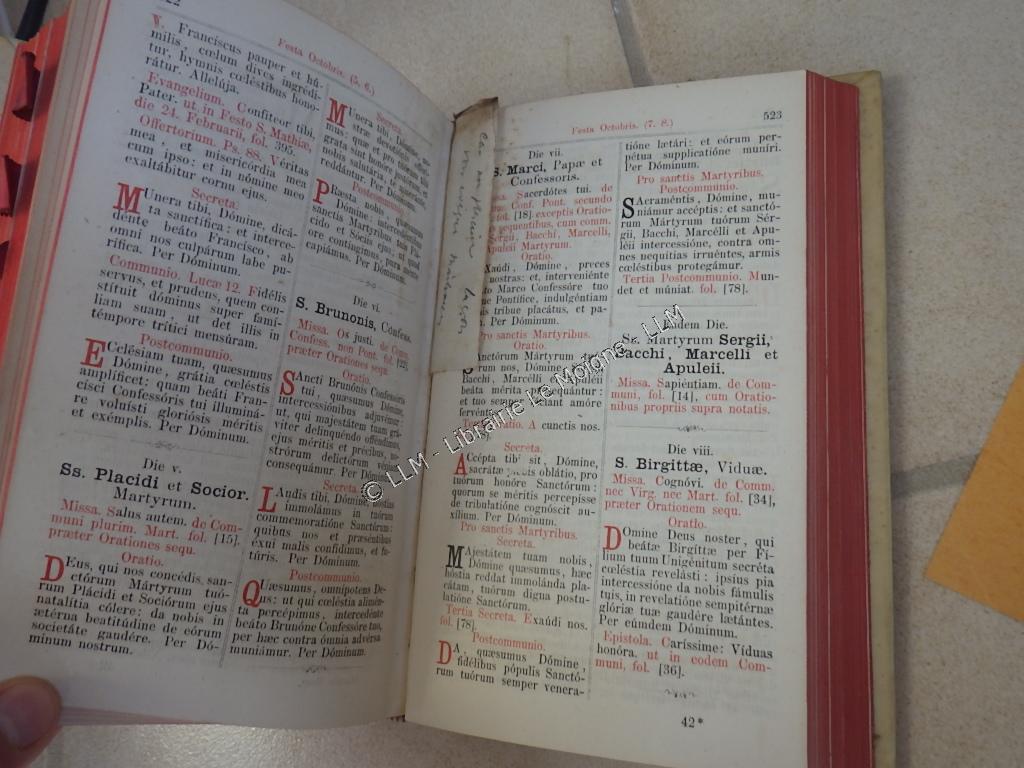 22
Festa Octobris. (5. 6.)
V. Franciscus pauper et hú-
milis, cœlum dives ingrédi-
tur, hymnis cœléstibus hono-
rátur. Allelúja.
Evangelium. Confíteor tibi,
Pater. ut in Festo S. Mathiæ,
die 24. Februarii, fol. 395.
Offertorium. Ps. 88. Véritas
mea, et misericórdia mea
cum ipso: et in nómine meo
exaltábitur cornu ejus.
Secreta.
MUnera tibi, Dómine, dicá-
ta sanctífica: et interce-
dénte beáto Francísco, ab
omni nos culpárum labe pu-
rífica. Per Dóminum.
Communio. Lucæ 12. Fidélis
servus, et prudens, quem con-
stítuit dóminus super famí-
liam suam, ut det illis in
témpore trítici mensúram.
Postcommunio.
ECclésiam tuam, quæsumus
Dómine, grátia cœléstis
amplíficet: quam beáti Fran-
císci Confessóris tui illuminá-
re voluísti gloriósis méritis
et exémplis. Per Dóminum.
Die v.
Ss. Placidi et Socior.
Martyrum.
Missa. Salus autem. de Com-
muni plurim. Mart. fol. [15].
præter Orationes sequ.
Oratio.
DEus, qui nos concédis san-
ctórum Mártyrum tuó-
rum Plácidi et Sociórum ejus
natalítia cólere: da nobis in
ætérna beatitúdine de eórum
societáte gaudére. Per Dó-
minum nostrum.
Secreta.
MUnera tibi, Dómine,
stræ devotiónis
mus:
nobis salutária, te
reddántur. Per Dóminum.
Postcommunio.
PRæsta nobis,
Dómine: intercedéntibus
sanctis Martýribus tuis Plá-
cido et Sóciis ejus, ut quod
ore contíngimus, pura mente
capiámus. Per Dóminum.
Die vi.
S. Brunonis, Confess.
Missa. Os justi. de Com.
Confess. non Pont. fol. [22].
præter Orationes sequ.
Oratio.
SAncti Brunónis Confessóris
tui, quæsumus Dómine,
intercessiónibus adjuvémur:
ut, qui majestátem tuam grá-
viter delinquéndo offéndimus,
ejus méritis et précibus, no-
strórum delictórum véniam
consequámur. Per Dóminum.
Secreta.
LAudis tibi, Dómine, hóstias
immolámus in tuórum
commemoratióne Sanctórum:
quibus nos et præséntibus
éxui malis confídimus, et fu-
túris. Per Dóminum.
Postcommunio.
QUæsumus, omnípotens De-
us: ut qui cœléstia alimén-
ta percépimus, intercedénte
beáto Brunóne Confessóre tuo,
per hæc contra ómnia advérsa
muniámur. Per Dóminum.
Festa Octobris. (7. 8.)
523
Die vii.
S. Marci, Papæ et
Confessoris.
Missa. Sacerdótes tui. de
Conf. Pont. secundo
fol. [18] exceptis Oratio-
sequentibus, cum comm.
Sergii, Bacchi, Marcelli,
Apuleii Martyrum.
Oratio.
Exáudi, Dómine, preces
nostras: et, interveniénte
beáto Marco Confessóre tuo
Pontífice, indulgéntiam
tríbue placátus, et pa-
cem. Per Dóminum.
Pro sanctis Martyribus.
Oratio.
SAnctórum Mártyrum
rum nos, Dómine,
Bacchi, Marcélli
beáta mérita prosequántur:
et tuo semper fáciant amóre
fervéntes.
Tertia Oratio. A cunctis nos.
Secreta.
ACcépta tibi sit, Dómine,
sacrátæ plebis oblátio, pro
tuórum honóre Sanctórum:
quorum se méritis percepísse
de tribulatióne cognóscit au-
xílium. Per Dóminum.
Pro sanctis Martyribus.
Secreta.
MAjestátem tuam nobis,
Dómine quæsumus, hæc
hóstia reddat immolánda pla-
cátam, tuórum digna postu-
latióne Sanctórum.
Tertia Secreta. Exáudi nos.
fol. [78].
Postcommunio.
DA, quæsumus Dómine,
fidélibus pópulis Sanctó-
rum tuórum semper venera-
tióne lætári: et eórum per-
pétua supplicatióne muníri.
Per Dóminum.
Pro sanctis Martyribus.
Postcommunio.
SAcraméntis, Dómine, mu-
niámur accéptis: et sanctó-
rum Mártyrum tuórum Sér-
gii, Bacchi, Marcélli et Apu-
léii intercessióne, contra om-
nes nequítias irruéntes, armis
cœléstibus protegámur.
Tertia Postcommunio. Mun-
det et múniat. fol. [78].
Eadem Die.
Ss. Martyrum Sergii,
Bacchi, Marcelli et
Apuleii.
Missa. Sapiéntiam. de Com-
muni, fol. [14], cum Oratio-
nibus propriis supra notatis.
Die viii.
S. Birgittæ, Viduæ.
Missa. Cognóvi. de Comm.
nec Virg. nec Mart. fol. [34],
præter Orationem sequ.
Oratio.
DOmine Deus noster, qui
beátæ Birgíttæ per Fí-
lium tuum Unigénitum secréta
cœléstia revelásti: ipsíus pia
intercessióne da nobis fámulis
tuis, in revelatióne sempitérnæ
glóriæ tuæ gaudére lætántes.
Per eúmdem Dóminum.
Epistola. Caríssime: Víduas
honóra. ut in eodem Com-
muni, fol. [36].
42*
© LLM - Librairie Le Moigne - LLM